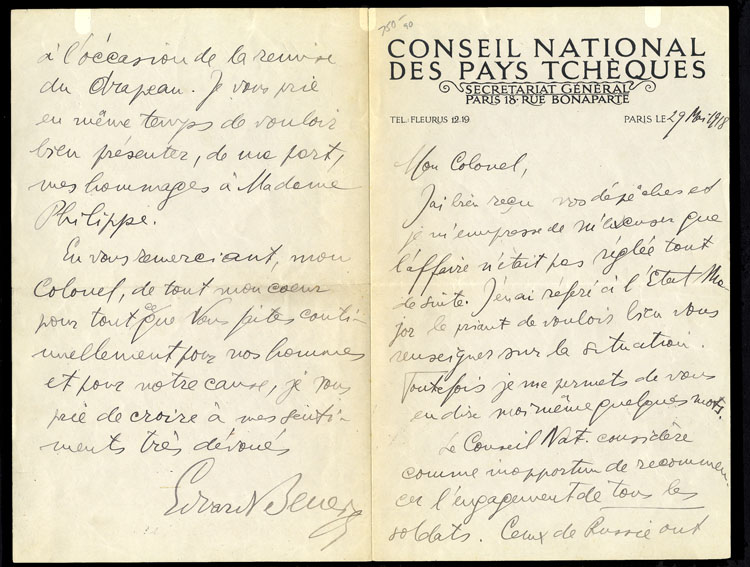 CONSEIL NATIONAL
DES PAYS TCHÈQUES
SECRÉTARIAT GÉNÉRAL
PARIS 18· RUE BONAPARTE
TEL: FLEURUS 12.19
PARIS LE 29 Mai 1918
Mon Colonel,
J'ai bien reçu vos dépêches et
je m'empresse de m'excuser que
l'affaire n'était pas réglée tout
de suite. J'en ai référé à l'Etat Ma-
jor le priant de vouloir bien vous
renseigner sur la situation.
Toutefois je me permets de vous
en dire moi même quelques mots.
Le Conseil Nat. considère
comme inopportun de recommen-
cer l'engagement de tous les
soldats. Ceux de Russie ont
à l'occasion de la remise
du drapeau. Je vous prie
en même temps de vouloir
bien présenter, de ma part,
mes hommages à Madame
Philippe.
En vous remerciant, mon
Colonel, de tout mon coeur
pour tout ce que Vous faites conti-
nuellement pour nos hommes
et pour notre cause, je vous
prie de croire à mes senti-
ments très dévoués
Edvard Beneš